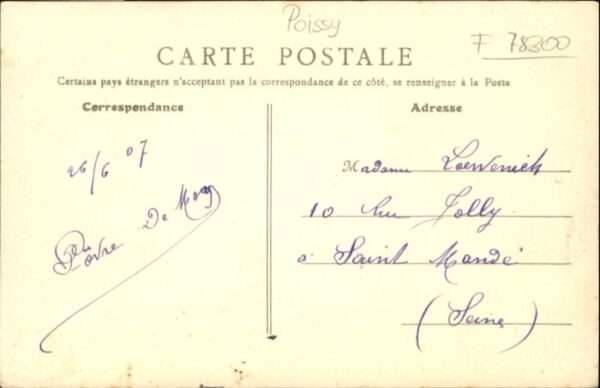 Poissy
F 78300
CARTE POSTALE
Certains pays étrangers n'acceptant pas la correspondance de ce côté, se renseigner à la Poste
Correspondance
Adresse
26/6 07
De
Madame Loewenich
10 Rue Jolly
a Saint Mandé
(Seine)